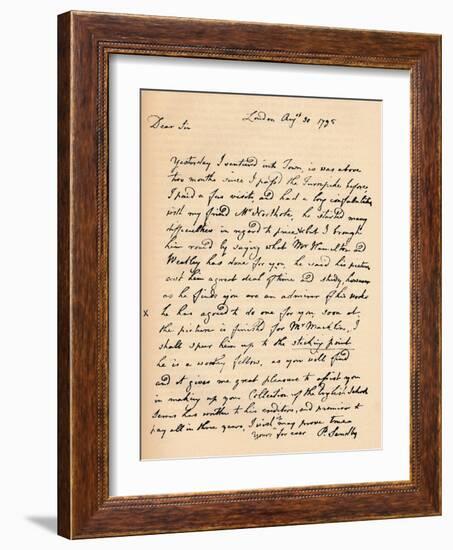 London Augst 30 1795
Dear Sir
Yesterday I ventured into Town, it was above
two months since I pass'd the Turnpike before,
I paid a few visits, and had a long confabulation
with my friend Mr Northcote, he started many
difficulties in regard to price &c but I brought
him round by saying what Mr Hamilton &
Wheatley has done for you, he said his pictures
cost him a great deal of time & study, however
as he finds you are an admirer of his works
x he has agreed to do one for you, soon as
the picture is finish'd for Mr Macklin, I
shall spur him up to the sticking point
he is a worthy fellow, as you will find
and it gives me great pleasure to assist you
in making up your Collection of the English School
has written to his creditors, and promises to
pay all in three years, I wish it may prove true
Yours for ever P. Sandby